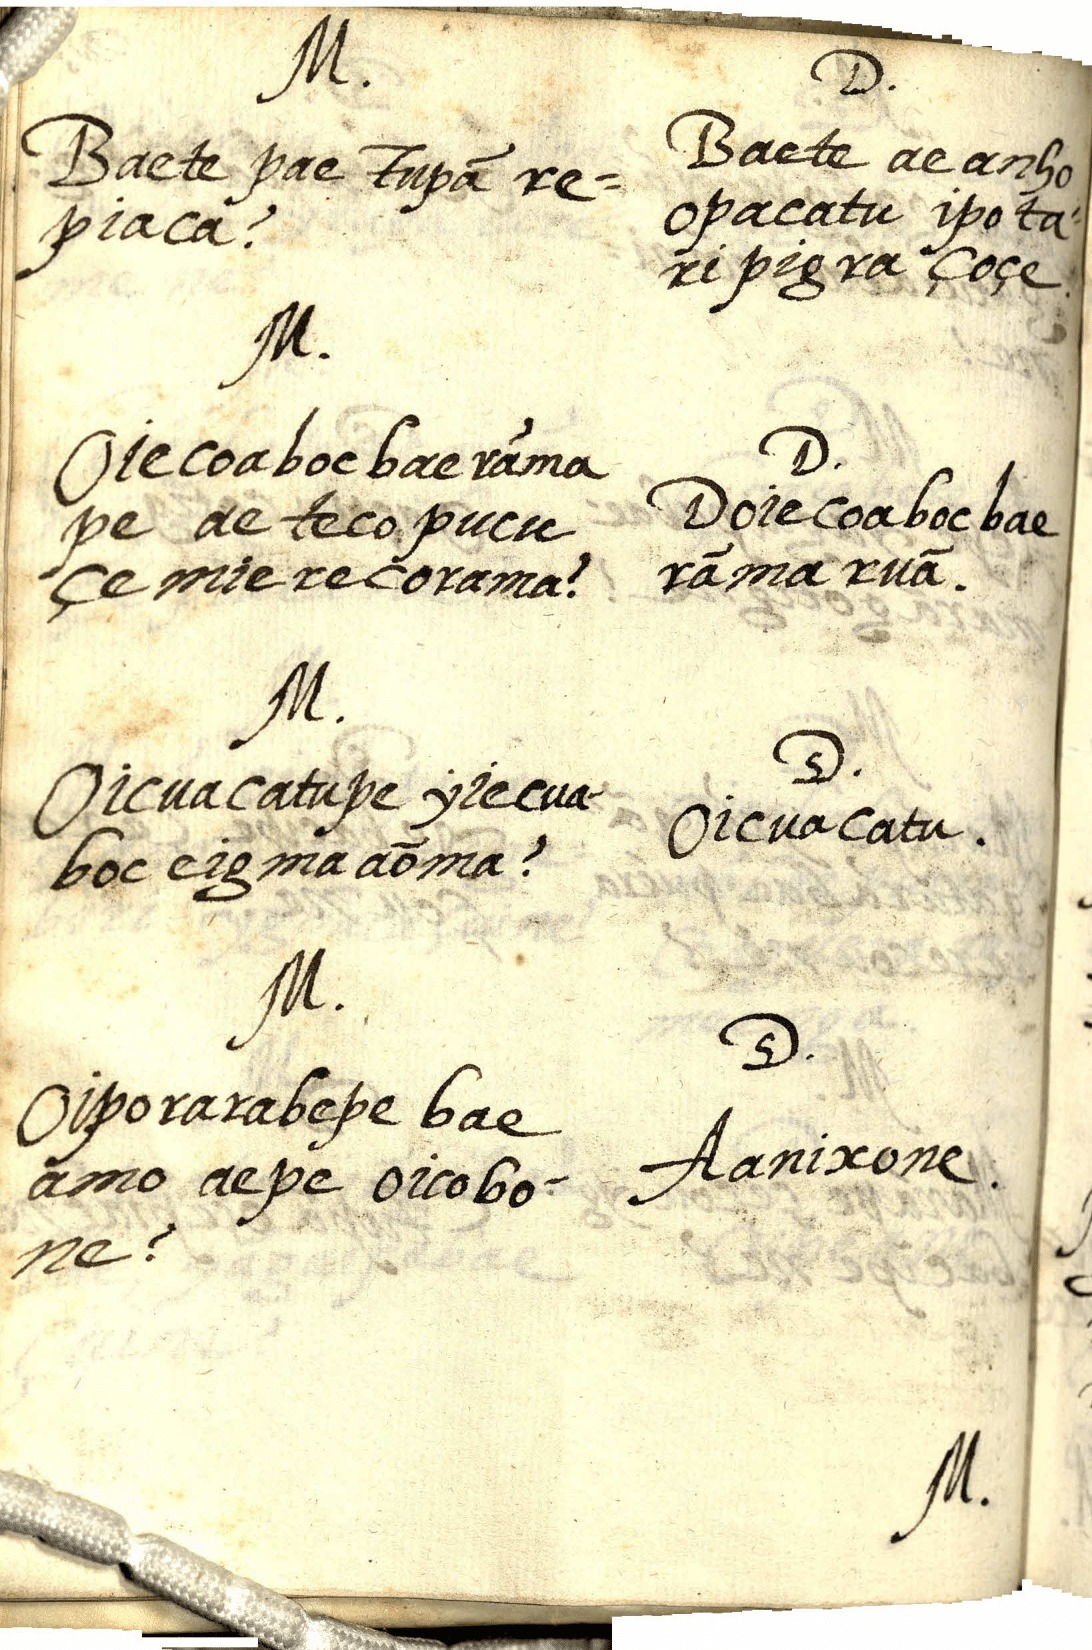 M.
Baete pae Tupã re=
piaca?
D.
Baete ae anho
opacatu ipota-
ri pigra çoçe.
M.
Oiecoaboc baerãma
pe ae teco pucu
çemierecorama?
D.
Doiecoaboc bae
rãma ruã.
M.
Oicuacatupe yiecua-
boc eigmaaõma?
D.
Oicuacatu.
M.
Oiporarabepe bae
amo aepe oicobo-
ne?
D.
Aanixone.
M.